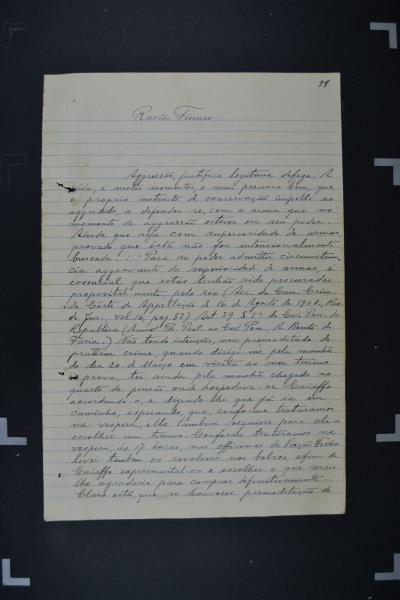 79
Rasões Finaes
Aggressão, justifica legitima defeza, A
vida, é nestes momentos, o mais precioso bem, que
o proprio instincto de conservação impelle ao
aggredido, a defender-se, com a arma que no
momento da aggressão estiver em seu poder.
Ainda que seja com superioridade de armas,
provado que esta não foi intencionalmente
buscada:: "Para se poder admittir circumstan-
cia aggravante da superioridade de armas, é
essencial que estas tenham sido procuradas
propositalmente pelo reo (Acc. da Cam. Crim.
da Côrte de Appellação de 16 de Agosto de 1901. Rev.
de Jur., vol 16, pag. 83) Art. 39 § 5º do Cod. Pen. da
Republica (Annot. Th. Prat. ao Cod. Pen. A. Bento de
Faria.) Não tendo intenção, nem premeditado de
praticar crime, quando dirigi-me pela manhã
do dia 20 de Março em visita ao meu
a prova, ter ainda pela manhã chegado no
quarto da pensão, onde hospedava-se Caiaffo
acordando-o, e dizendo-lhe que já ia em
caminho, esperando que, conforme tratáramos
na vespera, elle tambem seguisse para ali a
escolher um Conforme tratáramos na
vespera, ás 17 horas, nas officinas da Viação Ferrea
levei tambem os revolvers nos bolsos, afim de
Caiaffo experimental-os e escolher o que mais
lhe agradaria para comprar definitivamente.
Claro está, que, se houvesse premeditação de